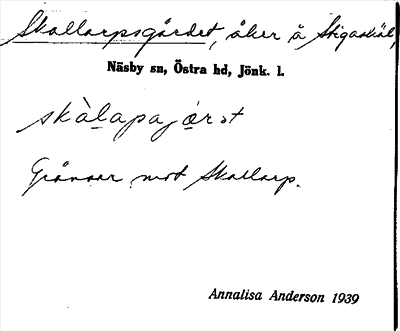 Skallarpsgärdet, åker å Stigaskäl,
Näsby sn, Östra hd, Jönk. l.
skàlapajǽrət
Gränsar mot Skallarp.
Annalisa Anderson 1939